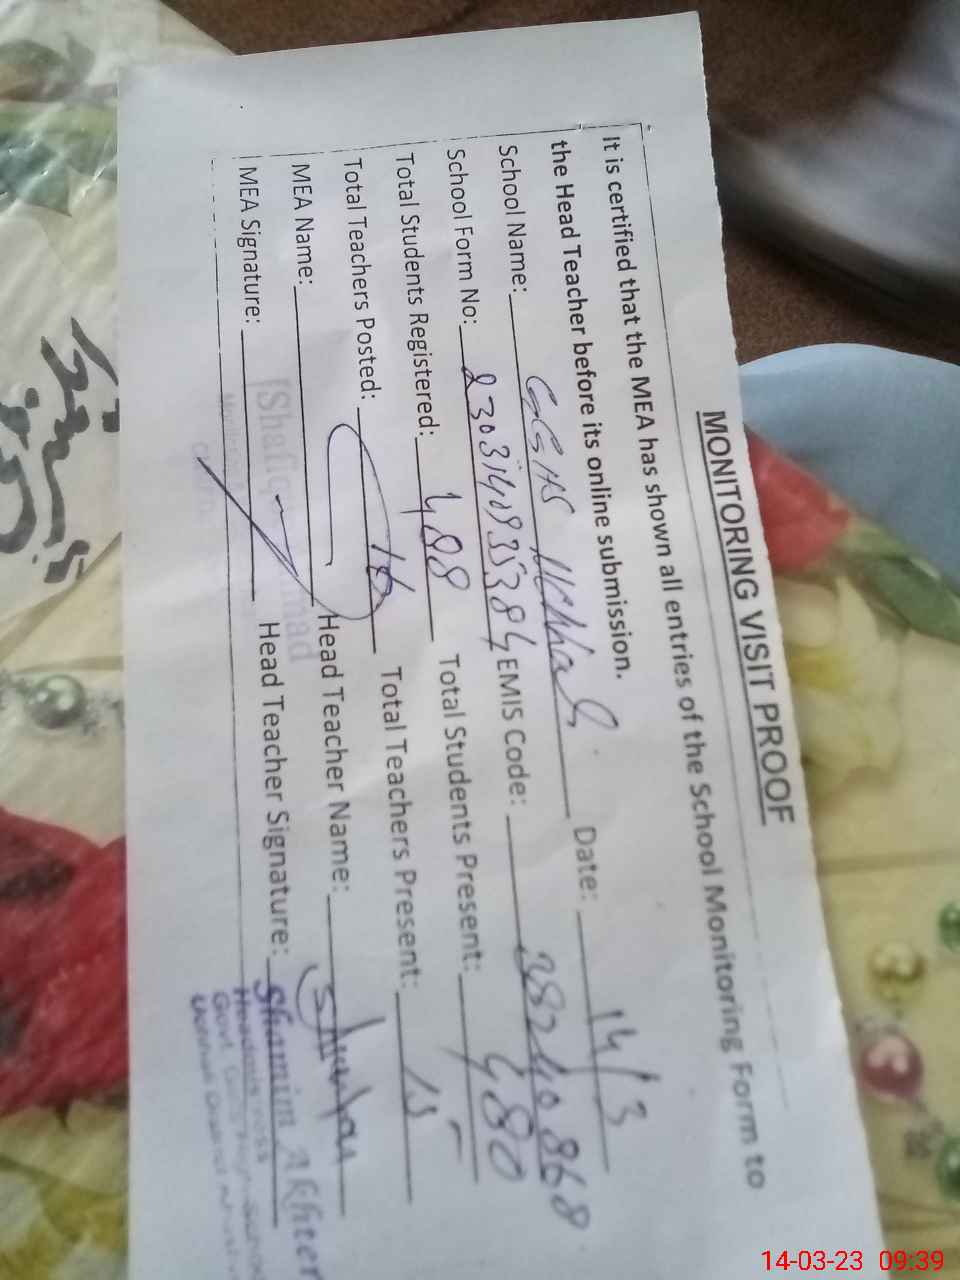 MONITORING VISIT PROOF
It is certified that the MEA has shown all entries of the School Monitoring Form to
the Head Teacher before its online submission.
School Name: GGHS Date: 14/3
School Form No: EMIS Code: 38240868
Total Students Registered: 488 Total Students Present: 480
Total Teachers Posted: 16 Total Teachers Present: 15
MEA Name: Head Teacher Name:
MEA Signature: Head Teacher Signature:
Shamim Akhter
Headmistress
Govt. Girls High School
14-03-23 09:39